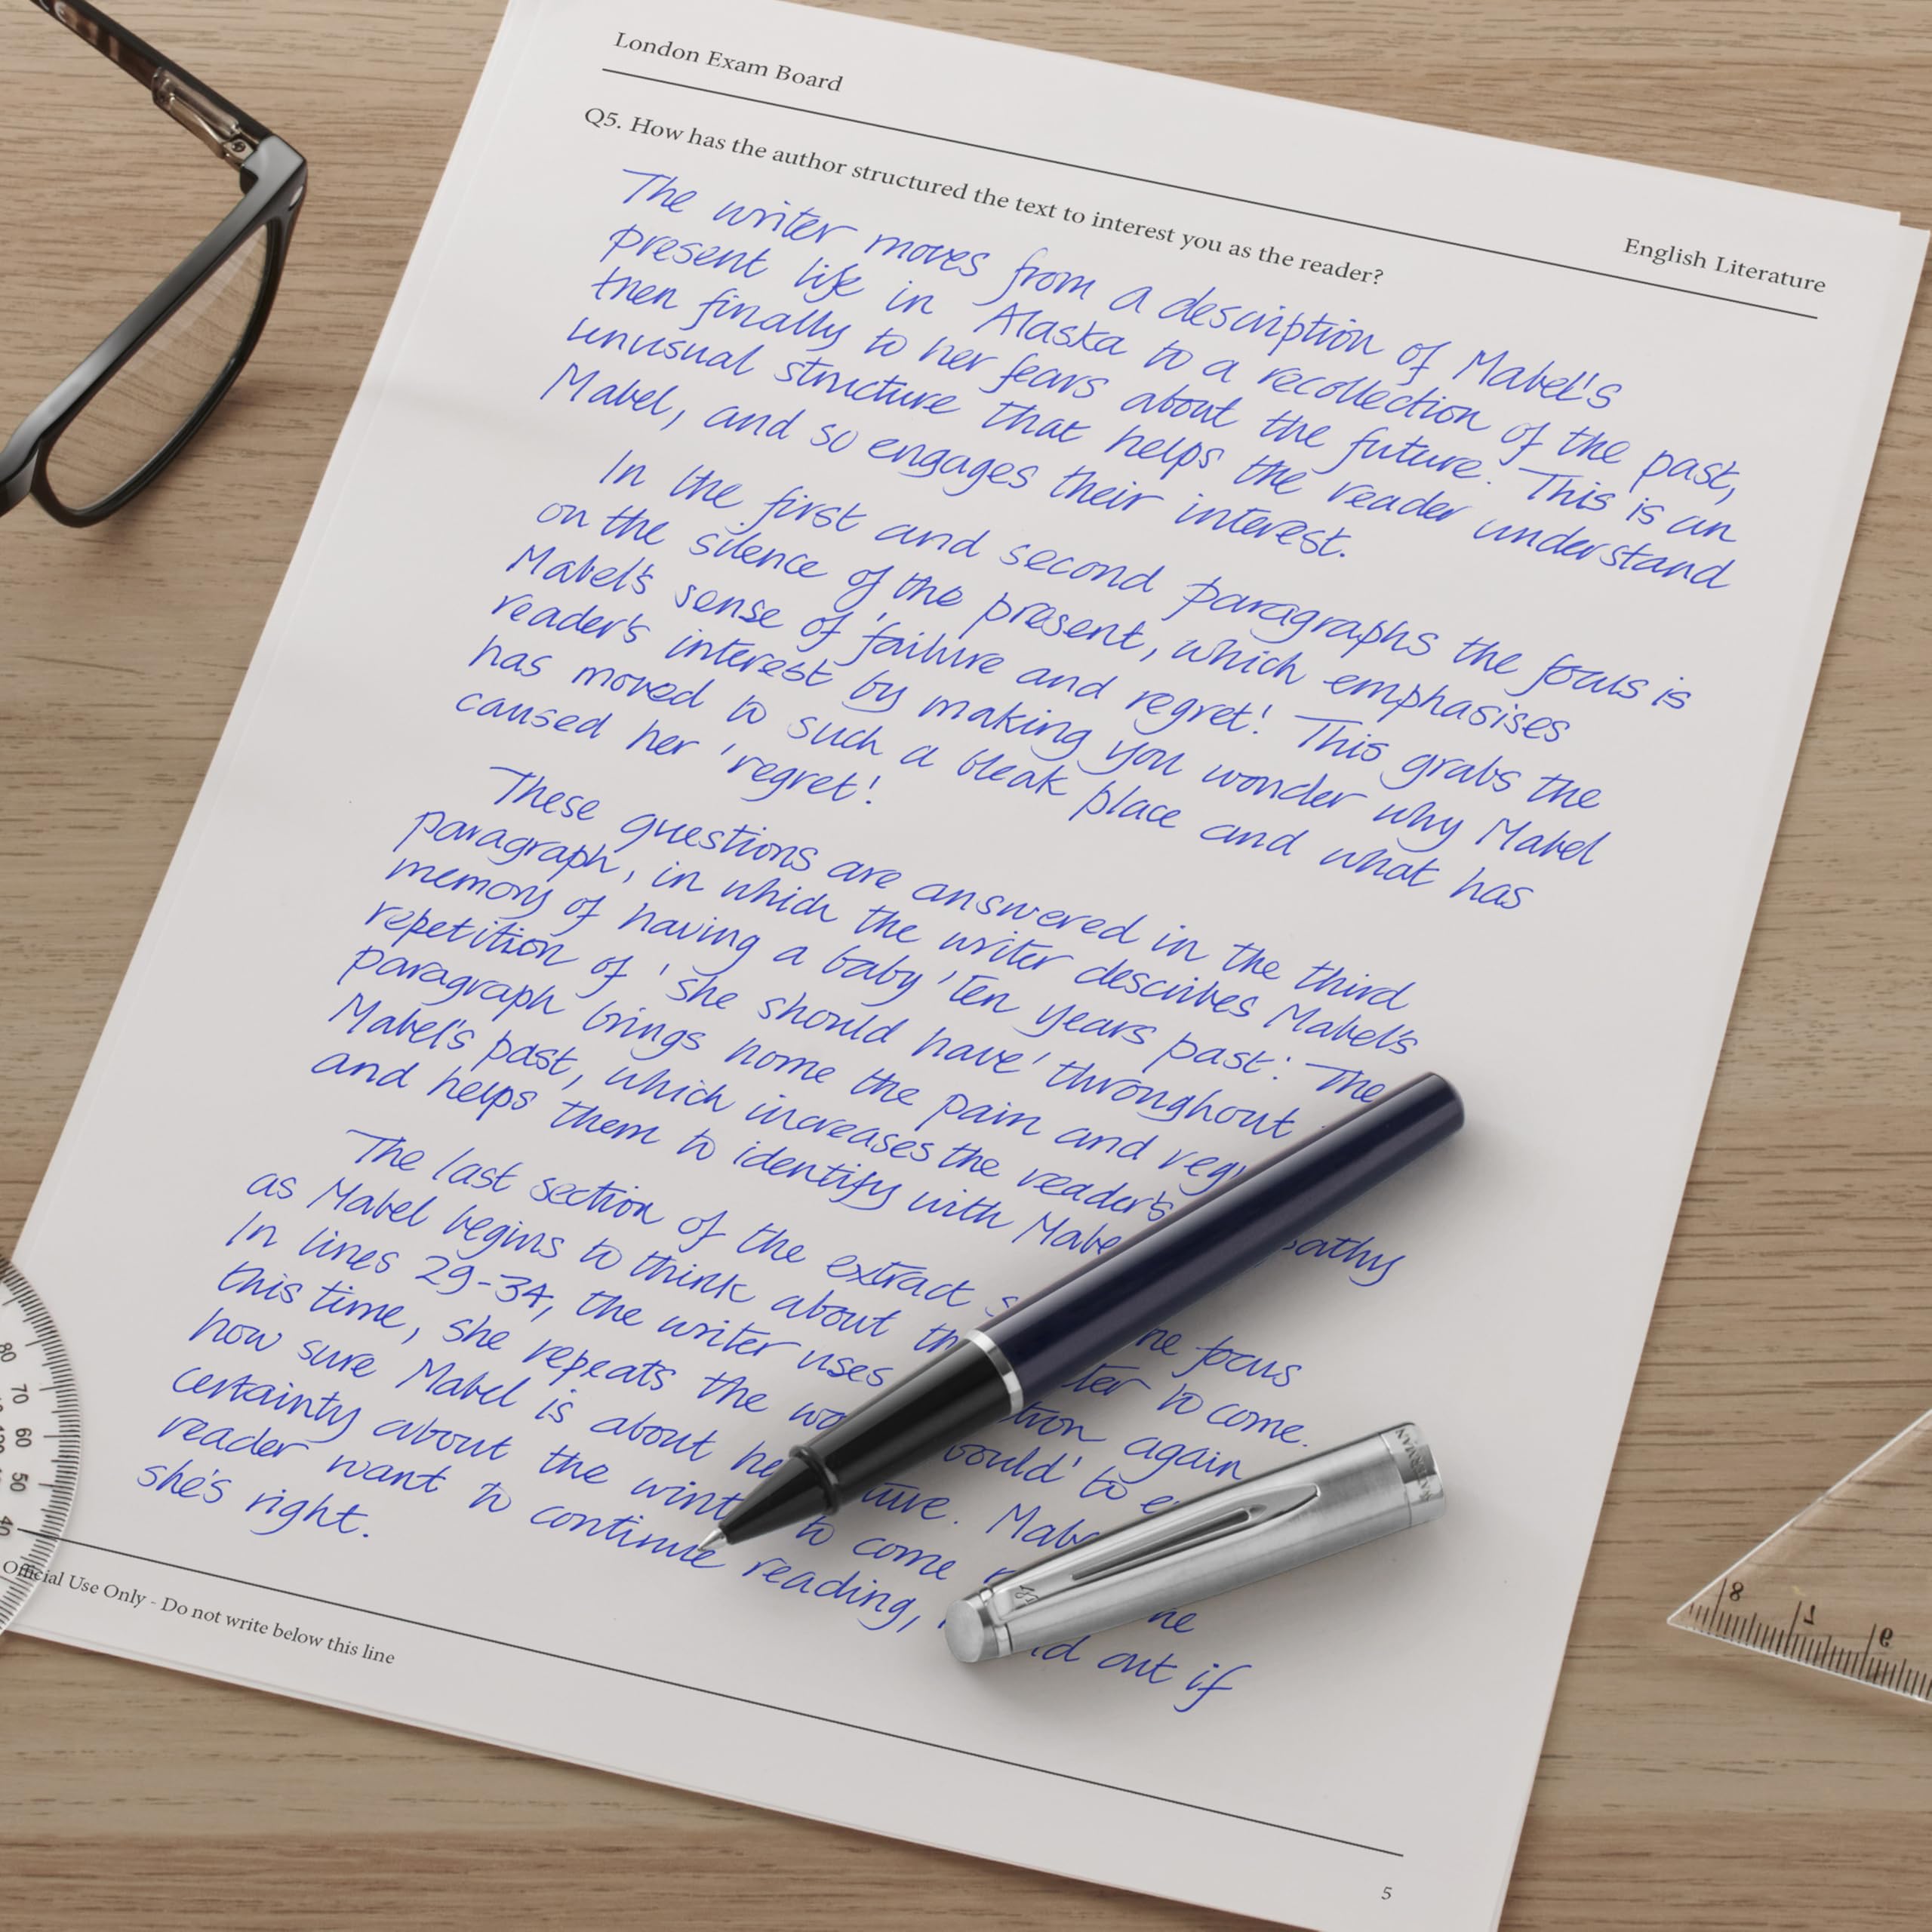 London Exam Board
English Literature
Q5. How has the author structured the text to interest you as the reader?
The writer moves from a description of Mabel's
present life in Alaska to a recollection of the past,
then finally to her fears about the future. This is an
unusual structure that helps the reader understand
Mabel, and so engages their interest.
In the first and second paragraphs the focus is
on the silence of the present, which emphasises
Mabel's sense of 'failure and regret'. This grabs the
reader's interest by making you wonder why Mabel
has moved to such a bleak place and what has
caused her 'regret'.
These questions are answered in the third
paragraph, in which the writer describes Mabel's
memory of having a baby 'ten years past'. The
repetition of 'she should have' throughout
paragraph brings home the pain and
Mabel's past, which increases the reader's
and helps them to identify with
The last section of the extract focus
as Mabel begins to think about to come.
In lines 29-34, the writer uses again
this time, she repeats the to
how sure Mabel is about
certainty about the to come
reader want to continue reading, out if
she's right.
Official Use Only - Do not write below this line
5
80
70
60
50
40
WATERMAN
8
7
6